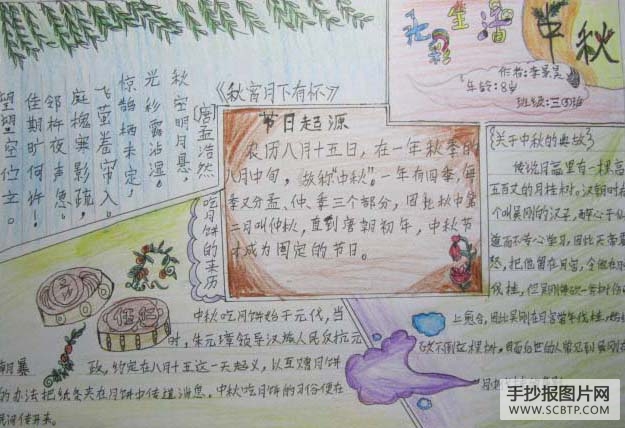 中秋
作者:李景昊
年龄:8岁
《秋宵月下有怀》
[唐孟浩然
秋空明月悬,
光彩露沾湿。
惊鹊栖未定,
飞萤卷帘入。
庭槐寒影疏,
邻杵夜声急。
佳期旷何许!
望望空伫立。
节日起源
农历八月十五日,在一年秋季的
八月中旬,故称“中秋”。一年有四季,每
季又分孟、仲、季三个部分,因秋中第
二月叫仲秋,直到唐朝初年,中秋节
才成为固定的节日。
吃月饼的来历
中秋吃月饼始于元代,当
时,朱元璋领导汉族人民反抗元
朝暴
政,约定在八月十五这一天起义,以互赠月饼
的办法把纸条夹在月饼中传递消息。中秋吃月饼的习俗便在
民间传开来。
《关于中秋的典故》
传说月宫里有一棵高
五百丈的月桂树。汉朝时有
个叫吴刚的汉子,醉心于仙
道而不专心学习,因此天帝震
怒,把他留在月宫,令他在
伐桂,但吴刚每砍一
上愈合,因此吴刚在月宫常年伐桂,
砍不倒这棵树,
手抄报图片网
WWW.SCBTP.COM